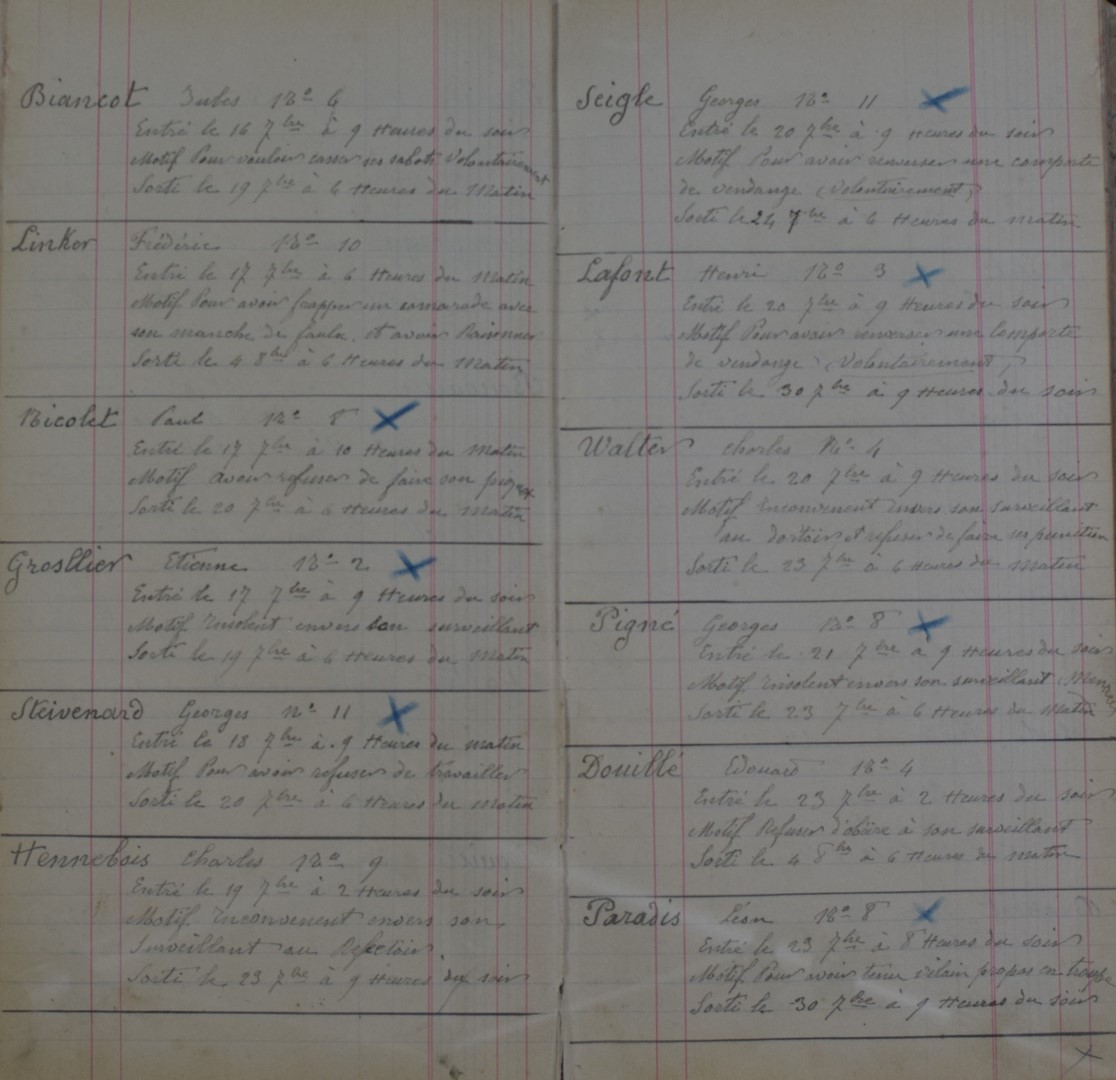 Biancot Jules N° 6
Entré le 16 7bre à 9 Heures du soir
Motif Pour vouloir casser ses sabots volontairement
Sorti le 19 7bre à 6 Heures du Matin
Linker Frédéric N° 10
Entré le 17 7bre à 6 Heures du Matin
Motif Pour avoir frapper un camarade avec
son manche de faulx, et avoir Raisonner
Sorti le 4 8bre à 6 Heures du Matin
Nicolet Paul N° 8
Entré le 17 7bre à 10 Heures du Matin
Motif avoir refuser de faire son piquet
Sorti le 20 7bre à 6 Heures du Matin
Grosllier Etienne N° 2
Entré le 17 7bre à 9 Heures du soir
Motif Insolent envers son surveillant
Sorti le 19 7bre à 6 Heures du Matin
Steivenard Georges N° 11
Entré le 18 7bre à 9 Heures du matin
Motif Pour avoir refuser de travailler
Sorti le 20 7bre à 6 Heures du matin
Hennebois Charles N° 9
Entré le 19 7bre à 2 Heures du soir
Motif Inconvenent envers son
Surveillant au Refectoir
Sorti le 23 7bre à 9 Heures du soir
Seigle Georges N° 11
Entré le 20 7bre à 9 Heures du soir
Motif Pour avoir renverser une comporte
de vendange (volontairement)
Sorti le 24 7bre à 6 Heures du matin
Lafont Henri N° 3
Entré le 20 7bre à 9 Heures du soir
Motif Pour avoir renverser une Comporte
de vendange (Volontairement)
Sorti le 30 7bre à 9 Heures du soir
Walter Charles N° 4
Entré le 20 7bre à 9 Heures du soir
Motif Inconvenent envers son surveillant
au dortoir et refuser de faire sa punition
Sorti le 23 7bre à 6 Heures du matin
Pigné Georges N° 8
Entré le 21 7bre à 9 Heures du soir
Motif Insolent envers son surveillant
Sorti le 23 7bre à 6 Heures du Matin
Douillé Edouard N° 4
Entré le 23 7bre à 2 Heures du soir
Motif Refuser d'obéire à son surveillant
Sorti le 4 8bre à 6 Heures du matin
Paradis Léon N° 8
Entré le 23 7bre à 8 Heures du soir
Motif Pour avoir tenu vilain propos en troupe
Sorti le 30 7bre à 9 Heures du soir